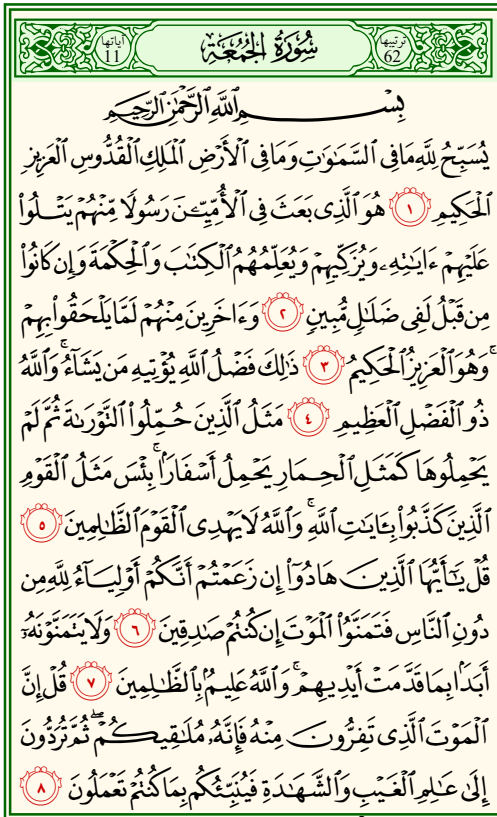 ترتيبها 62 سُورَةُ الْجُمُعَةِ آياتها 11
بِسْمِ ٱللَّهِ ٱلرَّحْمَٰنِ ٱلرَّحِيمِ
يُسَبِّحُ لِلَّهِ مَا فِى ٱلسَّمَٰوَٰتِ وَمَا فِى ٱلْأَرْضِ ٱلْمَلِكِ ٱلْقُدُّوسِ ٱلْعَزِيزِ
ٱلْحَكِيمِ ١ هُوَ ٱلَّذِى بَعَثَ فِى ٱلْأُمِّيِّـۧنَ رَسُولًا مِّنْهُمْ يَتْلُوا۟
عَلَيْهِمْ ءَايَٰتِهِۦ وَيُزَكِّيهِمْ وَيُعَلِّمُهُمُ ٱلْكِتَٰبَ وَٱلْحِكْمَةَ وَإِن كَانُوا۟
مِن قَبْلُ لَفِى ضَلَٰلٍ مُّبِينٍ ٢ وَءَاخَرِينَ مِنْهُمْ لَمَّا يَلْحَقُوا۟ بِهِمْ
ۚ وَهُوَ ٱلْعَزِيزُ ٱلْحَكِيمُ ٣ ذَٰلِكَ فَضْلُ ٱللَّهِ يُؤْتِيهِ مَن يَشَآءُ ۚ وَٱللَّهُ
ذُو ٱلْفَضْلِ ٱلْعَظِيمِ ٤ مَثَلُ ٱلَّذِينَ حُمِّلُوا۟ ٱلتَّوْرَىٰةَ ثُمَّ لَمْ
يَحْمِلُوهَا كَمَثَلِ ٱلْحِمَارِ يَحْمِلُ أَسْفَارًۢا ۚ بِئْسَ مَثَلُ ٱلْقَوْمِ
ٱلَّذِينَ كَذَّبُوا۟ بِـَٔايَٰتِ ٱللَّهِ ۚ وَٱللَّهُ لَا يَهْدِى ٱلْقَوْمَ ٱلظَّٰلِمِينَ ٥
قُلْ يَٰٓأَيُّهَا ٱلَّذِينَ هَادُوٓا۟ إِن زَعَمْتُمْ أَنَّكُمْ أَوْلِيَآءُ لِلَّهِ مِن
دُونِ ٱلنَّاسِ فَتَمَنَّوُا۟ ٱلْمَوْتَ إِن كُنتُمْ صَٰدِقِينَ ٦ وَلَا يَتَمَنَّوْنَهُۥٓ
أَبَدًۢا بِمَا قَدَّمَتْ أَيْدِيهِمْ ۚ وَٱللَّهُ عَلِيمٌۢ بِٱلظَّٰلِمِينَ ٧ قُلْ إِنَّ
ٱلْمَوْتَ ٱلَّذِى تَفِرُّونَ مِنْهُ فَإِنَّهُۥ مُلَٰقِيكُمْ ۖ ثُمَّ تُرَدُّونَ
إِلَىٰ عَٰلِمِ ٱلْغَيْبِ وَٱلشَّهَٰدَةِ فَيُنَبِّئُكُم بِمَا كُنتُمْ تَعْمَلُونَ ٨